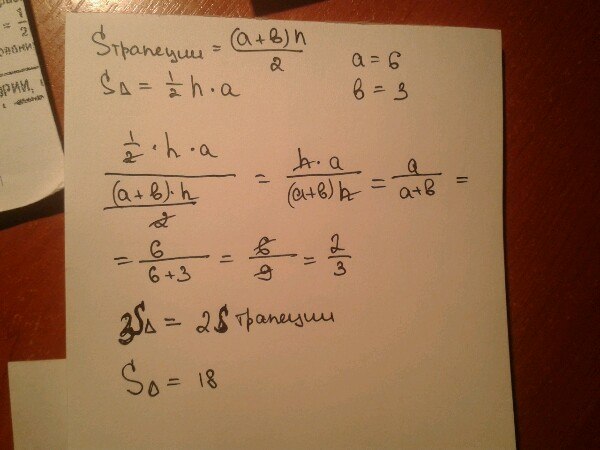 S трапеции = (a+b)h/2
a = 6
S△ = 1/2 h·a
b = 3
(1/2·h·a)/((a+b)·h/2) = h·a/(a+b)h = a/(a+b) =
= 6/(6+3) = 6/9 = 2/3
3S△ = 2S трапеции
S△ = 18